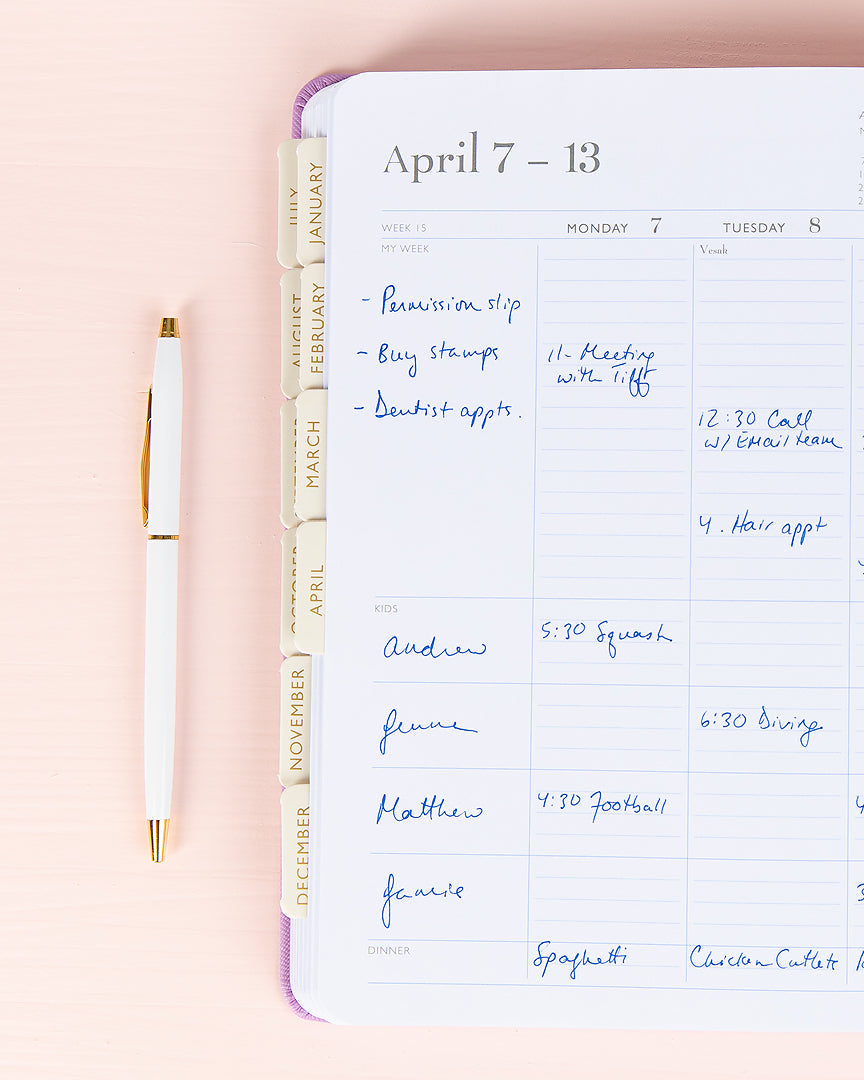 April 7 – 13
WEEK 15
MONDAY 7
TUESDAY 8
MY WEEK
Vesak
- Permission slip
- Buy stamps
11- Meeting
with Tiff
- Dentist appts.
12:30 Call
w/ EMail team
4. Hair appt
KIDS
Andrew
5:30 Squash
Jenna
6:30 Diving
Matthew
4:30 Football
Jamie
DINNER
Spaghetti
Chicken Cutlets
JULY
JANUARY
AUGUST
FEBRUARY
MARCH
OCTOBER
APRIL
NOVEMBER
DECEMBER